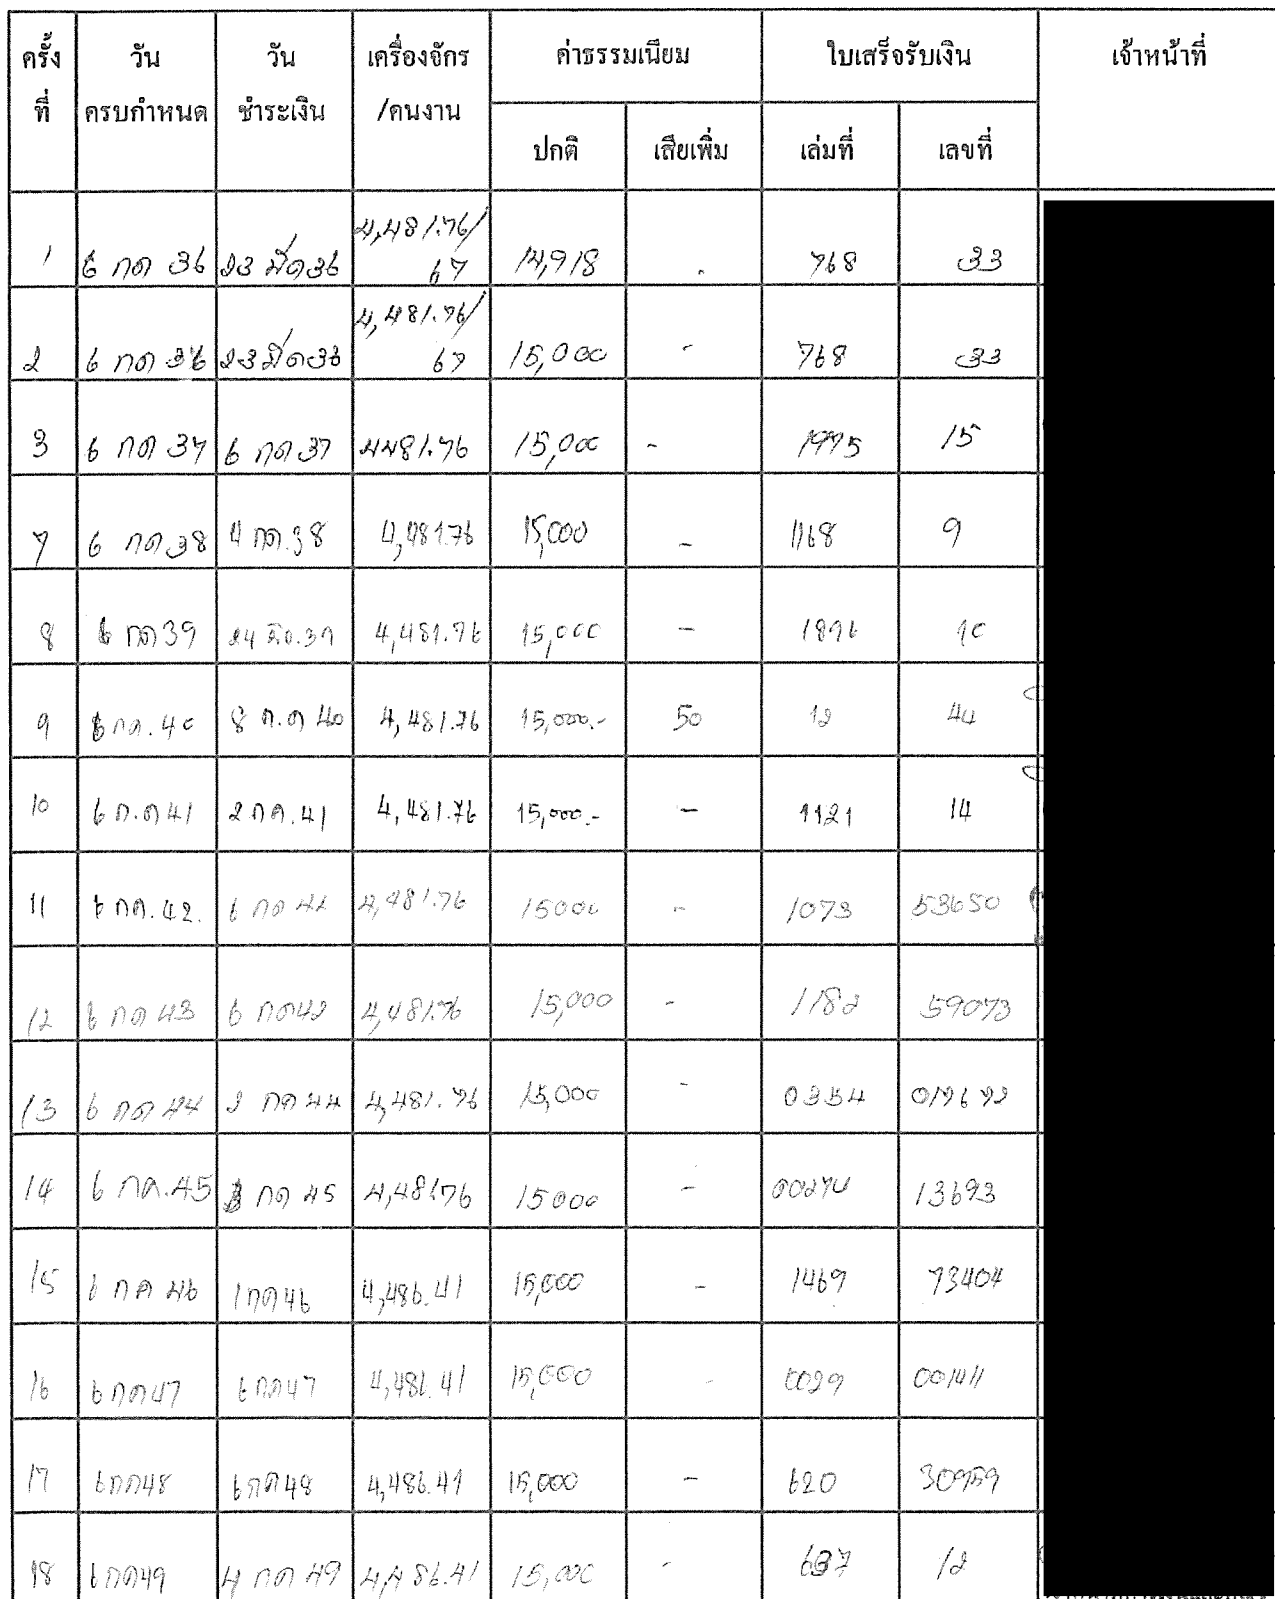 ครั้งที่ วันครบกำหนด วันชำระเงิน เครื่องจักร/คนงาน ค่าธรรมเนียม ใบเสร็จรับเงิน เจ้าหน้าที่
ปกติ เสียเพิ่ม เล่มที่ เลขที่
1 6 กค 36 23 มิค 36 4,481.76/67 14,918 - 768 33
2 6 กค 36 23 มิค 36 4,481.76/67 15,000 - 768 33
3 6 กค 37 6 กค 37 4481.76 15,000 - 1975 15
7 6 กค 38 4 กค.38 4,481.76 15,000 - 1168 9
8 6 กค 39 24 มิย.39 4,481.76 15,000 - 1896 10
9 8 กค.40 8 ก.ค 40 4,481.76 15,000.- 50 12 44
10 6 ก.ค 41 2 กค.41 4,481.76 15,000.- - 1121 14
11 6 กค.42. 6 กค 42 4,481.76 15000 - 1073 53650
12 6 กค 43 6 กค 42 4,481.76 15,000 - 1182 59073
13 6 กค 44 2 กค 44 4,481.76 15,000 - 0354 017672
14 6 กค.45 กค 45 4,481.76 15000 - 00274 13693
15 6 กค 46 1 กค 46 4,486.41 15,000 - 1469 73404
16 6 กค 47 6 กค 47 4,486.41 15,000 - 0029 001411
17 6 กค 48 6 กค 48 4,486.41 15,000 - 620 30959
18 6 กค 49 4 กค 49 4,486.41 15,000 - 637 12